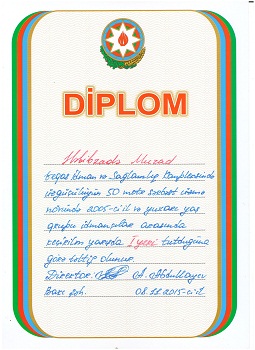 DİPLOM
Həbibzadə Murad
İdman və Sağlamlıq Kompleksində
üzgüçülüyün 50 metr sərbəst üsmə
növündə 2005-ci il və yuxarı yaş
qrupu idmançılar arasında
keçirilən yarışda I yeri tutduğuna
görə təltif olunur.
Direktor: A. Abdullayev
Bakı şəh. 08.12.2015-ci il